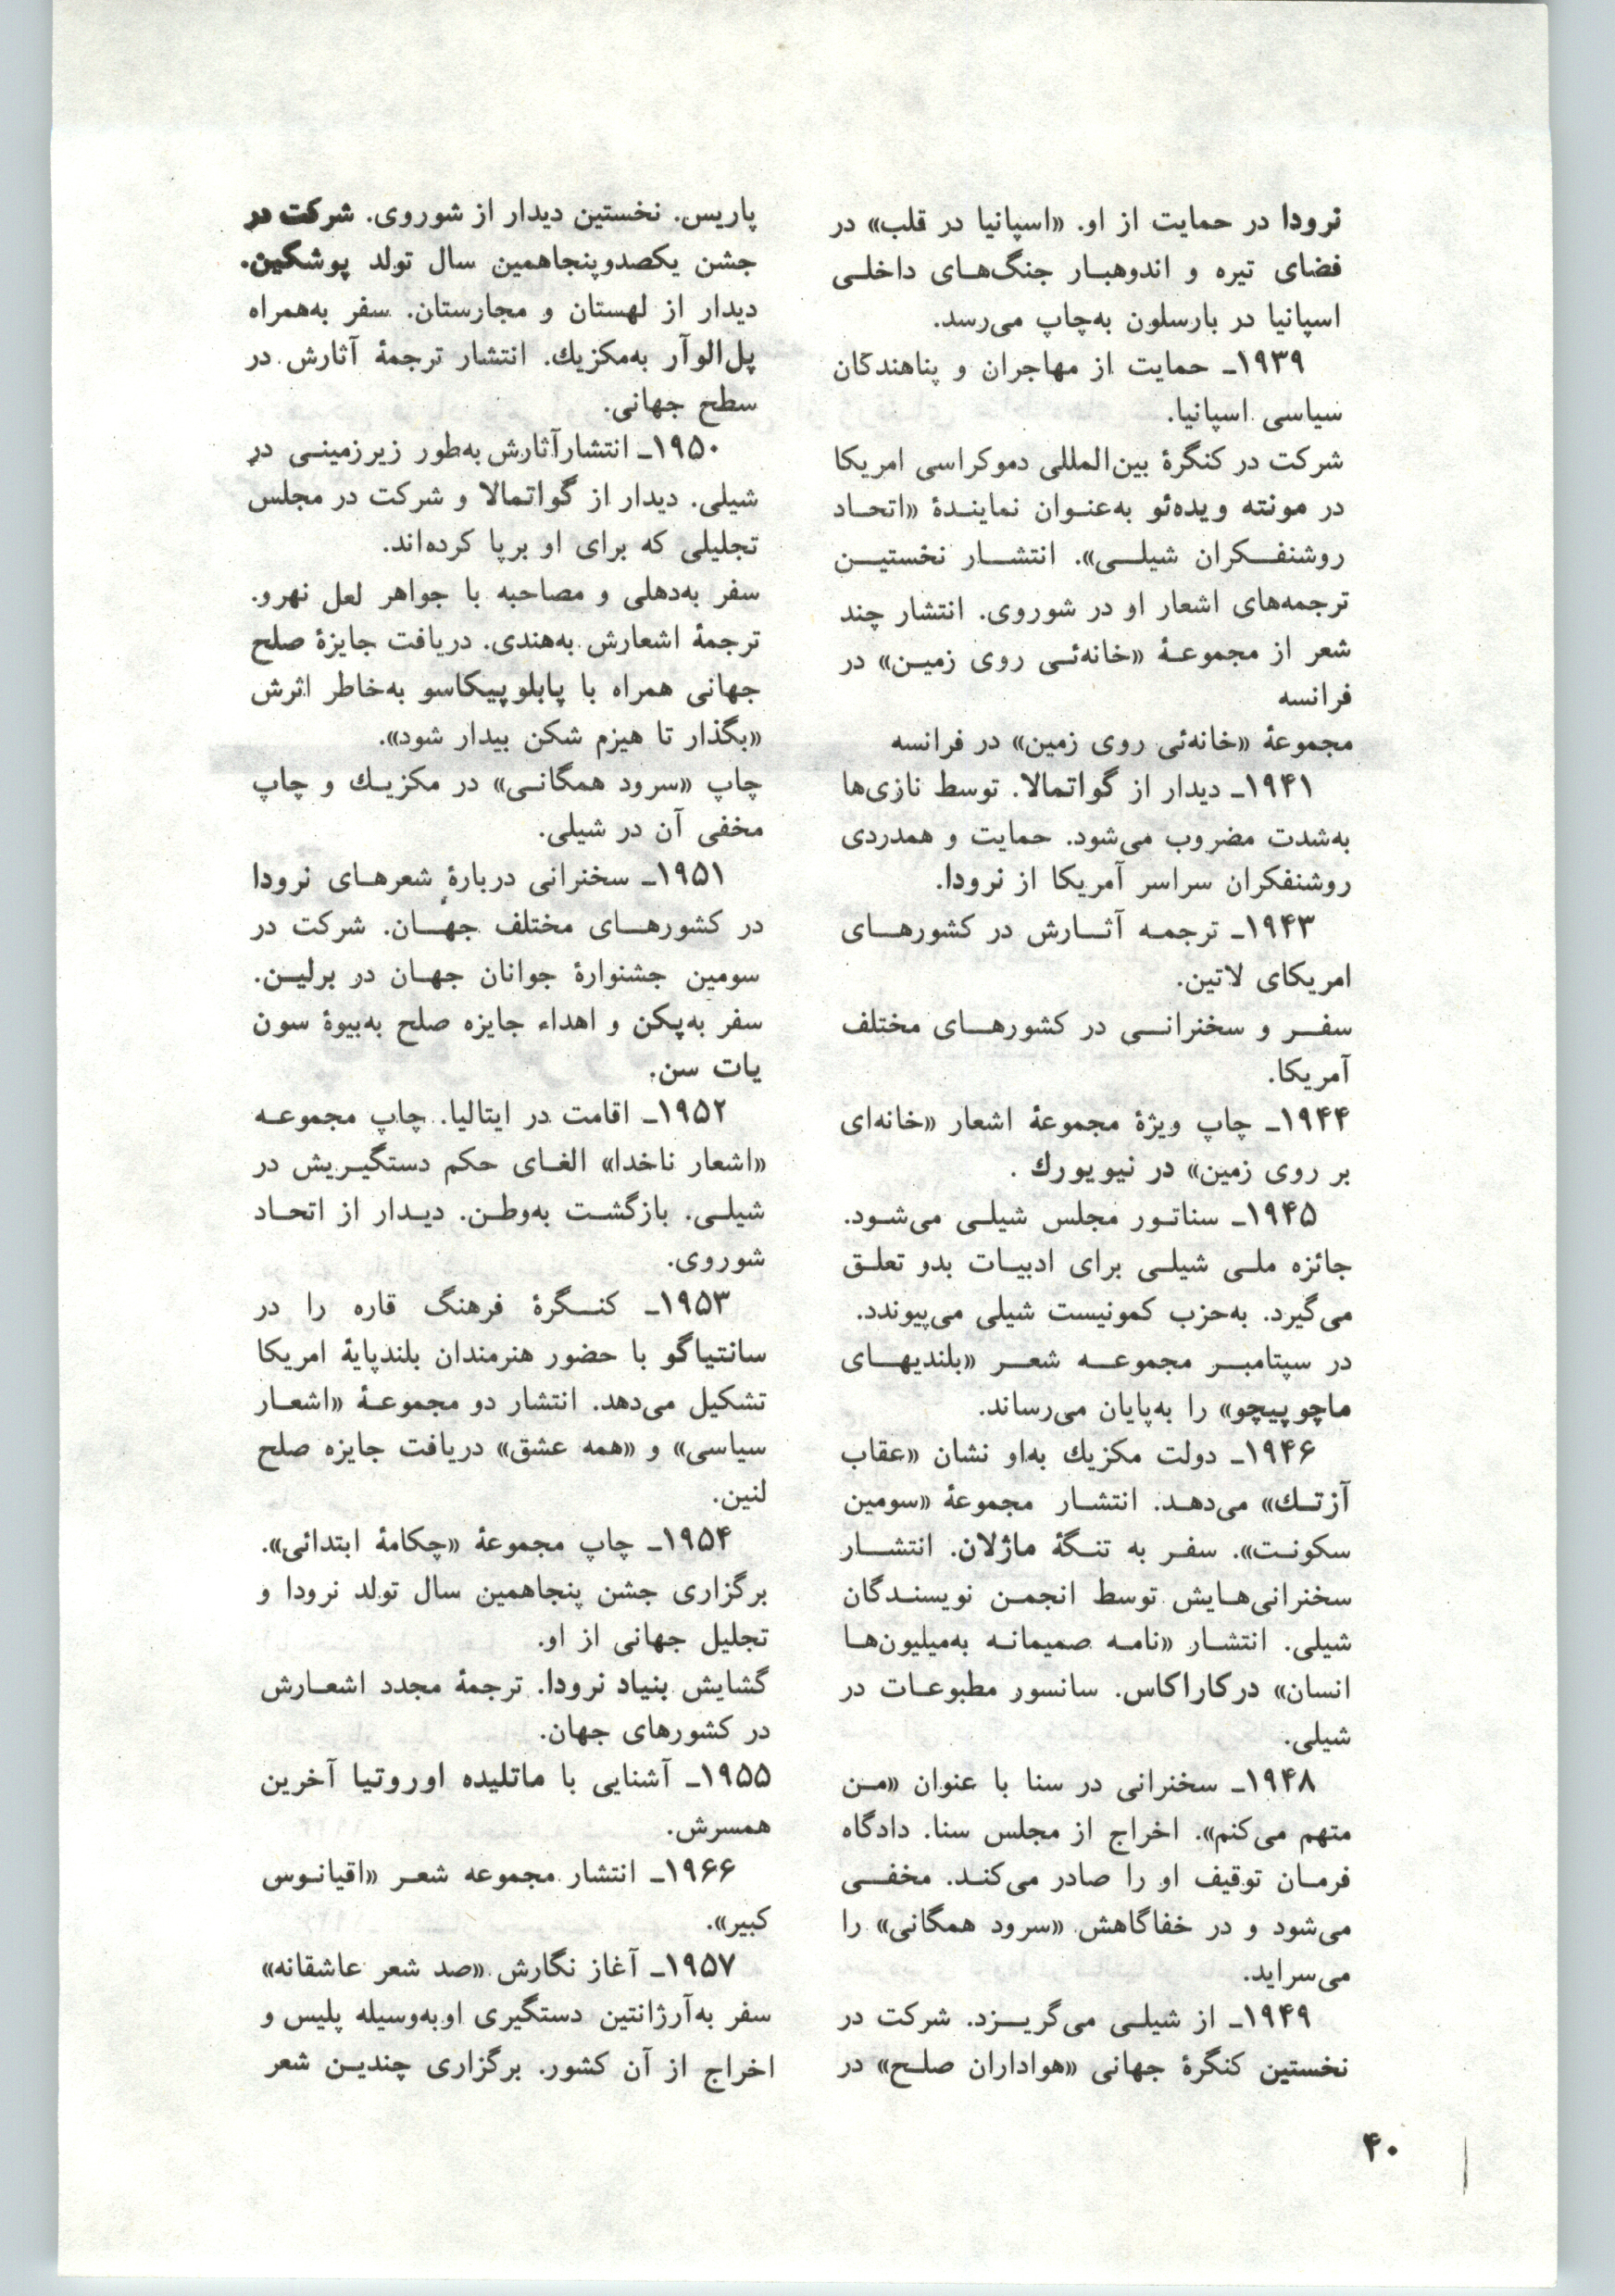 نرودا در حمایت از او. «اسپانیا در قلب» در
فضای تیره و اندوهبار جنگ‌های داخلی
اسپانیا در بارسلون به‌چاپ می‌رسد.
۱۹۳۹ـ حمایت از مهاجران و پناهندگان
سیاسی اسپانیا.
شرکت در کنگرهٔ بین‌المللی دموکراسی امریکا
در مونته ویده‌ئو به‌عنوان نمایندهٔ «اتحاد
روشنفکران شیلی». انتشار نخستین
ترجمه‌های اشعار او در شوروی. انتشار چند
شعر از مجموعهٔ «خانه‌ئی روی زمین» در
فرانسه
مجموعهٔ «خانه‌ئی روی زمین» در فرانسه
۱۹۴۱ـ دیدار از گواتمالا. توسط نازی‌ها
به‌شدت مضروب می‌شود. حمایت و همدردی
روشنفکران سراسر آمریکا از نرودا.
۱۹۴۳ـ ترجمه آثارش در کشورهای
امریکای لاتین.
سفر و سخنرانی در کشورهای مختلف
آمریکا.
۱۹۴۴ـ چاپ ویژهٔ مجموعهٔ اشعار «خانه‌ای
بر روی زمین» در نیویورك .
۱۹۴۵ـ سناتور مجلس شیلی می‌شود.
جائزه ملی شیلی برای ادبیات بدو تعلق
می‌گیرد. به‌حزب کمونیست شیلی می‌پیوندد.
در سپتامبر مجموعه شعر «بلندیهای
ماچوپیچو» را به‌پایان می‌رساند.
۱۹۴۶ـ دولت مکزیك به‌او نشان «عقاب
آزتك» می‌دهد. انتشار مجموعهٔ «سومین
سکونت». سفر به تنگهٔ ماژلان. انتشار
سخنرانی‌هایش توسط انجمن نویسندگان
شیلی. انتشار «نامه صمیمانه به‌میلیون‌ها
انسان» درکاراکاس. سانسور مطبوعات در
شیلی.
۱۹۴۸ـ سخنرانی در سنا با عنوان «من
متهم می‌کنم». اخراج از مجلس سنا. دادگاه
فرمان توقیف او را صادر می‌کند. مخفی
می‌شود و در خفاگاهش «سرود همگانی» را
می‌سراید.
۱۹۴۹ـ از شیلی می‌گریزد. شرکت در
نخستین کنگرهٔ جهانی «هواداران صلح» در
پاریس. نخستین دیدار از شوروی. شرکت در
جشن یکصدوپنجاهمین سال تولد پوشگین.
دیدار از لهستان و مجارستان. سفر به‌همراه
پل‌الوآر به‌مکزیك. انتشار ترجمهٔ آثارش در
سطح جهانی.
۱۹۵۰ـ انتشارآثارش به‌طور زیرزمینی در
شیلی. دیدار از گواتمالا و شرکت در مجلس
تجلیلی که برای او برپا کرده‌اند.
سفر به‌دهلی و مصاحبه با جواهر لعل نهرو.
ترجمهٔ اشعارش به‌هندی. دریافت جایزهٔ صلح
جهانی همراه با پابلوپیکاسو به‌خاطر اثرش
«بگذار تا هیزم شکن بیدار شود».
چاپ «سرود همگانی» در مکزیك و چاپ
مخفی آن در شیلی.
۱۹۵۱ـ سخنرانی دربارهٔ شعرهای نرودا
در کشورهای مختلف جهان. شرکت در
سومین جشنوارهٔ جوانان جهان در برلین.
سفر به‌پکن و اهداء جایزه صلح به‌بیوهٔ سون
یات سن.
۱۹۵۲ـ اقامت در ایتالیا. چاپ مجموعه
«اشعار ناخدا» الغای حکم دستگیریش در
شیلی. بازگشت به‌وطن. دیدار از اتحاد
شوروی.
۱۹۵۳ـ کنگرهٔ فرهنگ قاره را در
سانتیاگو با حضور هنرمندان بلندپایهٔ امریکا
تشکیل می‌دهد. انتشار دو مجموعهٔ «اشعار
سیاسی» و «همه عشق» دریافت جایزه صلح
لنین.
۱۹۵۴ـ چاپ مجموعهٔ «چکامهٔ ابتدائی».
برگزاری جشن پنجاهمین سال تولد نرودا و
تجلیل جهانی از او.
گشایش بنیاد نرودا. ترجمهٔ مجدد اشعارش
در کشورهای جهان.
۱۹۵۵ـ آشنایی با ماتلیده اوروتیا آخرین
همسرش.
۱۹۶۶ـ انتشار مجموعه شعر «اقیانوس
کبیر».
۱۹۵۷ـ آغاز نگارش «صد شعر عاشقانه»
سفر به‌آرژانتین دستگیری اوبه‌وسیله پلیس و
اخراج از آن کشور. برگزاری چندین شعر
۴۰